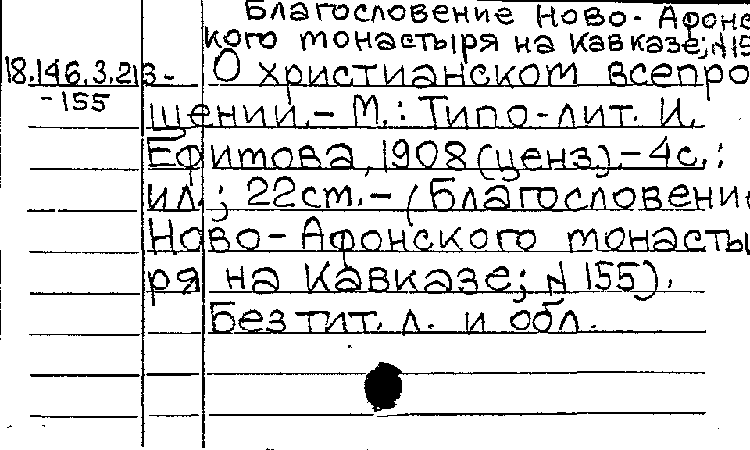 Благословение Ново-Афонс
кого монастыря на Кавказе; N 15
18.146.3.213- О христианском всепро
-155
щении.- М.: Типо-лит. И.
Ефимова, 1908 (ценз).- 4с.:
ил.; 22см.- (Благословени
Ново-Афонского монасты
ря на Кавказе; N 155).
Без тит. л. и обл.